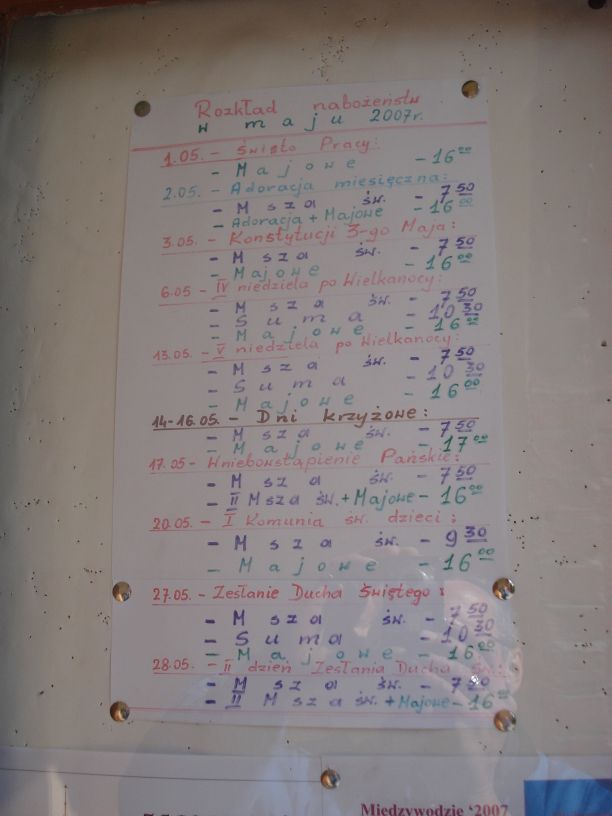 Rozkład nabożeństw
w maju 2007r.
1.05. - Święto Pracy:
- Majowe - 16⁰⁰
2.05. - Adoracja miesięczna:
- Msza św. - 7⁵⁰
- Adoracja + Majowe - 16⁰⁰
3.05. - Konstytucji 3-go Maja:
- Msza św. - 7⁵⁰
- Majowe - 16⁰⁰
6.05 - IV niedziela po Wielkanocy:
- Msza św. - 7⁵⁰
- Suma - 10³⁰
- Majowe - 16⁰⁰
13.05. - V niedziela po Wielkanocy:
- Msza św. - 7⁵⁰
- Suma - 10³⁰
- Majowe - 16⁰⁰
14-16.05. - Dni krzyżowe:
- Msza św. - 7⁵⁰
- Majowe - 17⁰⁰
17.05 - Wniebowstąpienie Pańskie:
- Msza św. - 7⁵⁰
- II Msza św. + Majowe - 16⁰⁰
20.05. - I Komunia św. dzieci:
- Msza św. - 9³⁰
- Majowe - 16⁰⁰
27.05. - Zesłanie Ducha Świętego:
- Msza św. - 7⁵⁰
- Suma - 10³⁰
- Majowe - 16⁰⁰
28.05. - II dzień Zesłania Ducha Św.:
- Msza św. - 7⁵⁰
- II Msza św. + Majowe - 16⁰⁰
Międzywodzie '2007